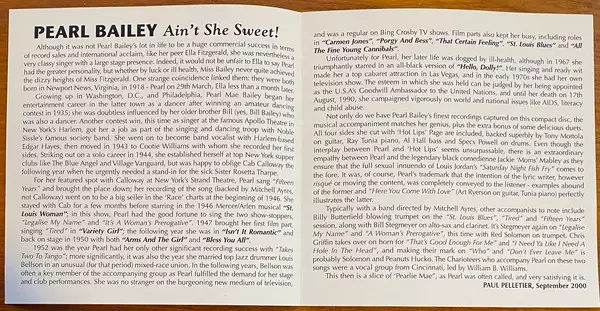 PEARL BAILEY Ain't She Sweet!
Although it was not Pearl Bailey's lot in life to be a huge commercial success in terms
of record sales and international acclaim, like her peer Ella Fitzgerald, she was nevertheless a
very classy singer with a large stage presence. Indeed, it would not be unfair to Ella to say Pearl
had the greater personality, but whether by luck or ill health, Miss Bailey never quite achieved
the dizzy heights of Miss Fitzgerald. One strange coincidence linked them; they were both
born in Newport News, Virginia, in 1918 - Pearl on 29th March, Ella less than a month later.
Growing up in Washington, D.C., and Philadelphia, Pearl Mae Bailey began her
entertainment career in the latter town as a dancer after winning an amateur dancing
contest in 1935; she was doubtless influenced by her older brother Bill (yes, Bill Bailey) who
was also a dancer. Another contest win, this time as singer at the famous Apollo Theatre in
New York's Harlem, got her a job as part of the singing and dancing troup with Noble
Sissle's famous society band. She went on to become band vocalist with Harlem-based
Edgar Hayes, then moved in 1943 to Cootie Williams with whom she recorded her first
sides. Striking out on a solo career in 1944, she established herself at top New York supper
clubs like The Blue Angel and Village Vanguard, but was happy to oblige Cab Calloway the
following year when he urgently needed a stand-in for the sick Sister Rosetta Tharpe.
For her featured spot with Calloway at New York's Strand Theatre, Pearl sang "Fifteen
Years" and brought the place down; her recording of the song (backed by Mitchell Ayres,
not Calloway) went on to be a big seller in the 'Race' charts at the beginning of 1946. She
stayed with Cab for a few months before starring in the 1946 Mercer/Arlen musical "St.
Louis Woman"; in this show, Pearl had the good fortune to sing the two show-stoppers,
"Legalise My Name" and "It's A Woman's Perogative". 1947 brought her first film part,
singing "Tired" in "Variety Girl"; the following year she was in "Isn't It Romantic" and
back on stage in 1950 with both "Arms And The Girl" and "Bless You All".
1952 was the year Pearl had her only other significant recording success with "Takes
Two To Tango"; more significantly, it was also the year she married top Jazz drummer Louis
Bellson in an unusual (for that period) mixed-race union. In the following years, Bellson was
often a key member of the accompanying group as Pearl fulfilled the demand for her stage
and club performances. She was no stranger on the burgeoning new medium of television,
and was a regular on Bing Crosby TV shows. Film parts also kept her busy, including roles
in "Carmen Jones", "Porgy And Bess", "That Certain Feeling", "St. Louis Blues" and "All
The Fine Young Cannibals".
Unfortunately for Pearl, her later life was dogged by ill-health, although in 1967 she
triumphantly starred in an all-black version of "Hello, Dolly!". Her singing and ready wit
made her a top cabaret attraction in Las Vegas, and in the early 1970s she had her own
television show. The esteem in which she was held can be judged by her being appointed
as the U.S.A's Goodwill Ambassador to the United Nations, and until her death on 17th
August, 1990, she campaigned vigorously on world and national issues like AIDS, literacy
and child abuse.
Not only do we have Pearl Bailey's finest recordings captured on this compact disc, the
musical accompaniment matches her genius, plus the extra bonus of some delicious duets.
All four sides she cut with 'Hot Lips' Page are included, backed superbly by Tony Mottola
on guitar, Ray Tunia piano, Al Hall bass and Specs Powell on drums. Even though the
interplay between Pearl and 'Hot Lips' seems unsurpassable, there is an extraordinary
empathy between Pearl and the legendary black comedienne Jackie 'Moms' Mabley as they
ensure that the full sexual innuendo of Louis Jordan's "Saturday Night Fish Fry" comes to
the fore. It was, of course, Pearl's trademark that the intention of the lyric writer, however
risqué or moving the content, was completely conveyed to the listener - examples abound
of the former and "Here You Come With Love" (Art Ryerson on guitar, Tunia piano) perfectly
illustrates the latter.
Typically with a band directed by Mitchell Ayres, other accompanists to note include
Billy Butterfield blowing trumpet on the "St. Louis Blues", "Tired" and "Fifteen Years"
session, along with Bill Stegmeyer on alto-sax and clarinet. It's Stegmeyer again on "Legalise
My Name" and "A Woman's Perogative", this time with Red Solomon on trumpet. Chris
Griffin takes over on horn for "That's Good Enough For Me" and "I Need Ya Like I Need A
Hole In The Head", and making their mark on "Who" and "Don't Ever Leave Me" is
probably Solomon and Peanuts Hucko. The Charioteers who accompany Pearl on these two
songs were a vocal group from Cincinnati, led by William B. Williams.
This then is a slice of 'Pearlie Mae", as Pearl was often called, and very satisfying it is.
PAUL PELLETIER, September 2000